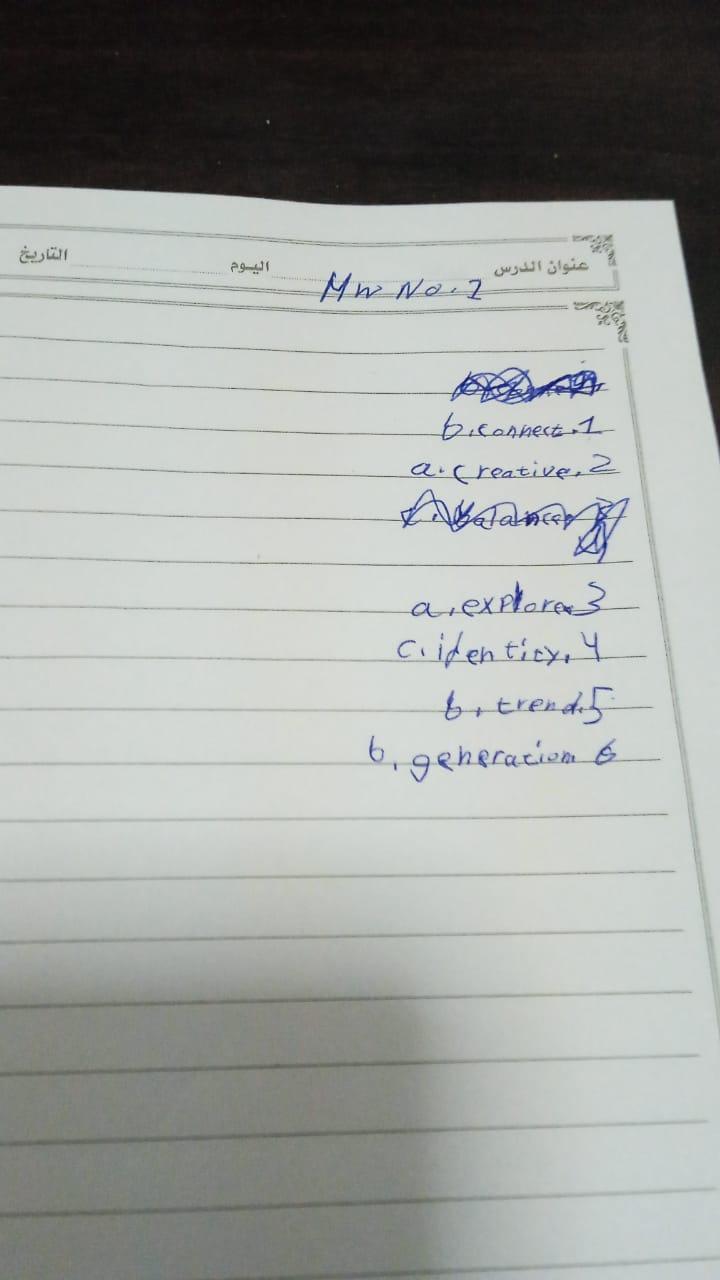 عنوان الدرس اليوم التاريخ
Mw No. 1
b. connect. 1
a. creative. 2
a. explore. 3
c. identity. 4
b. trend. 5
b. generation 6